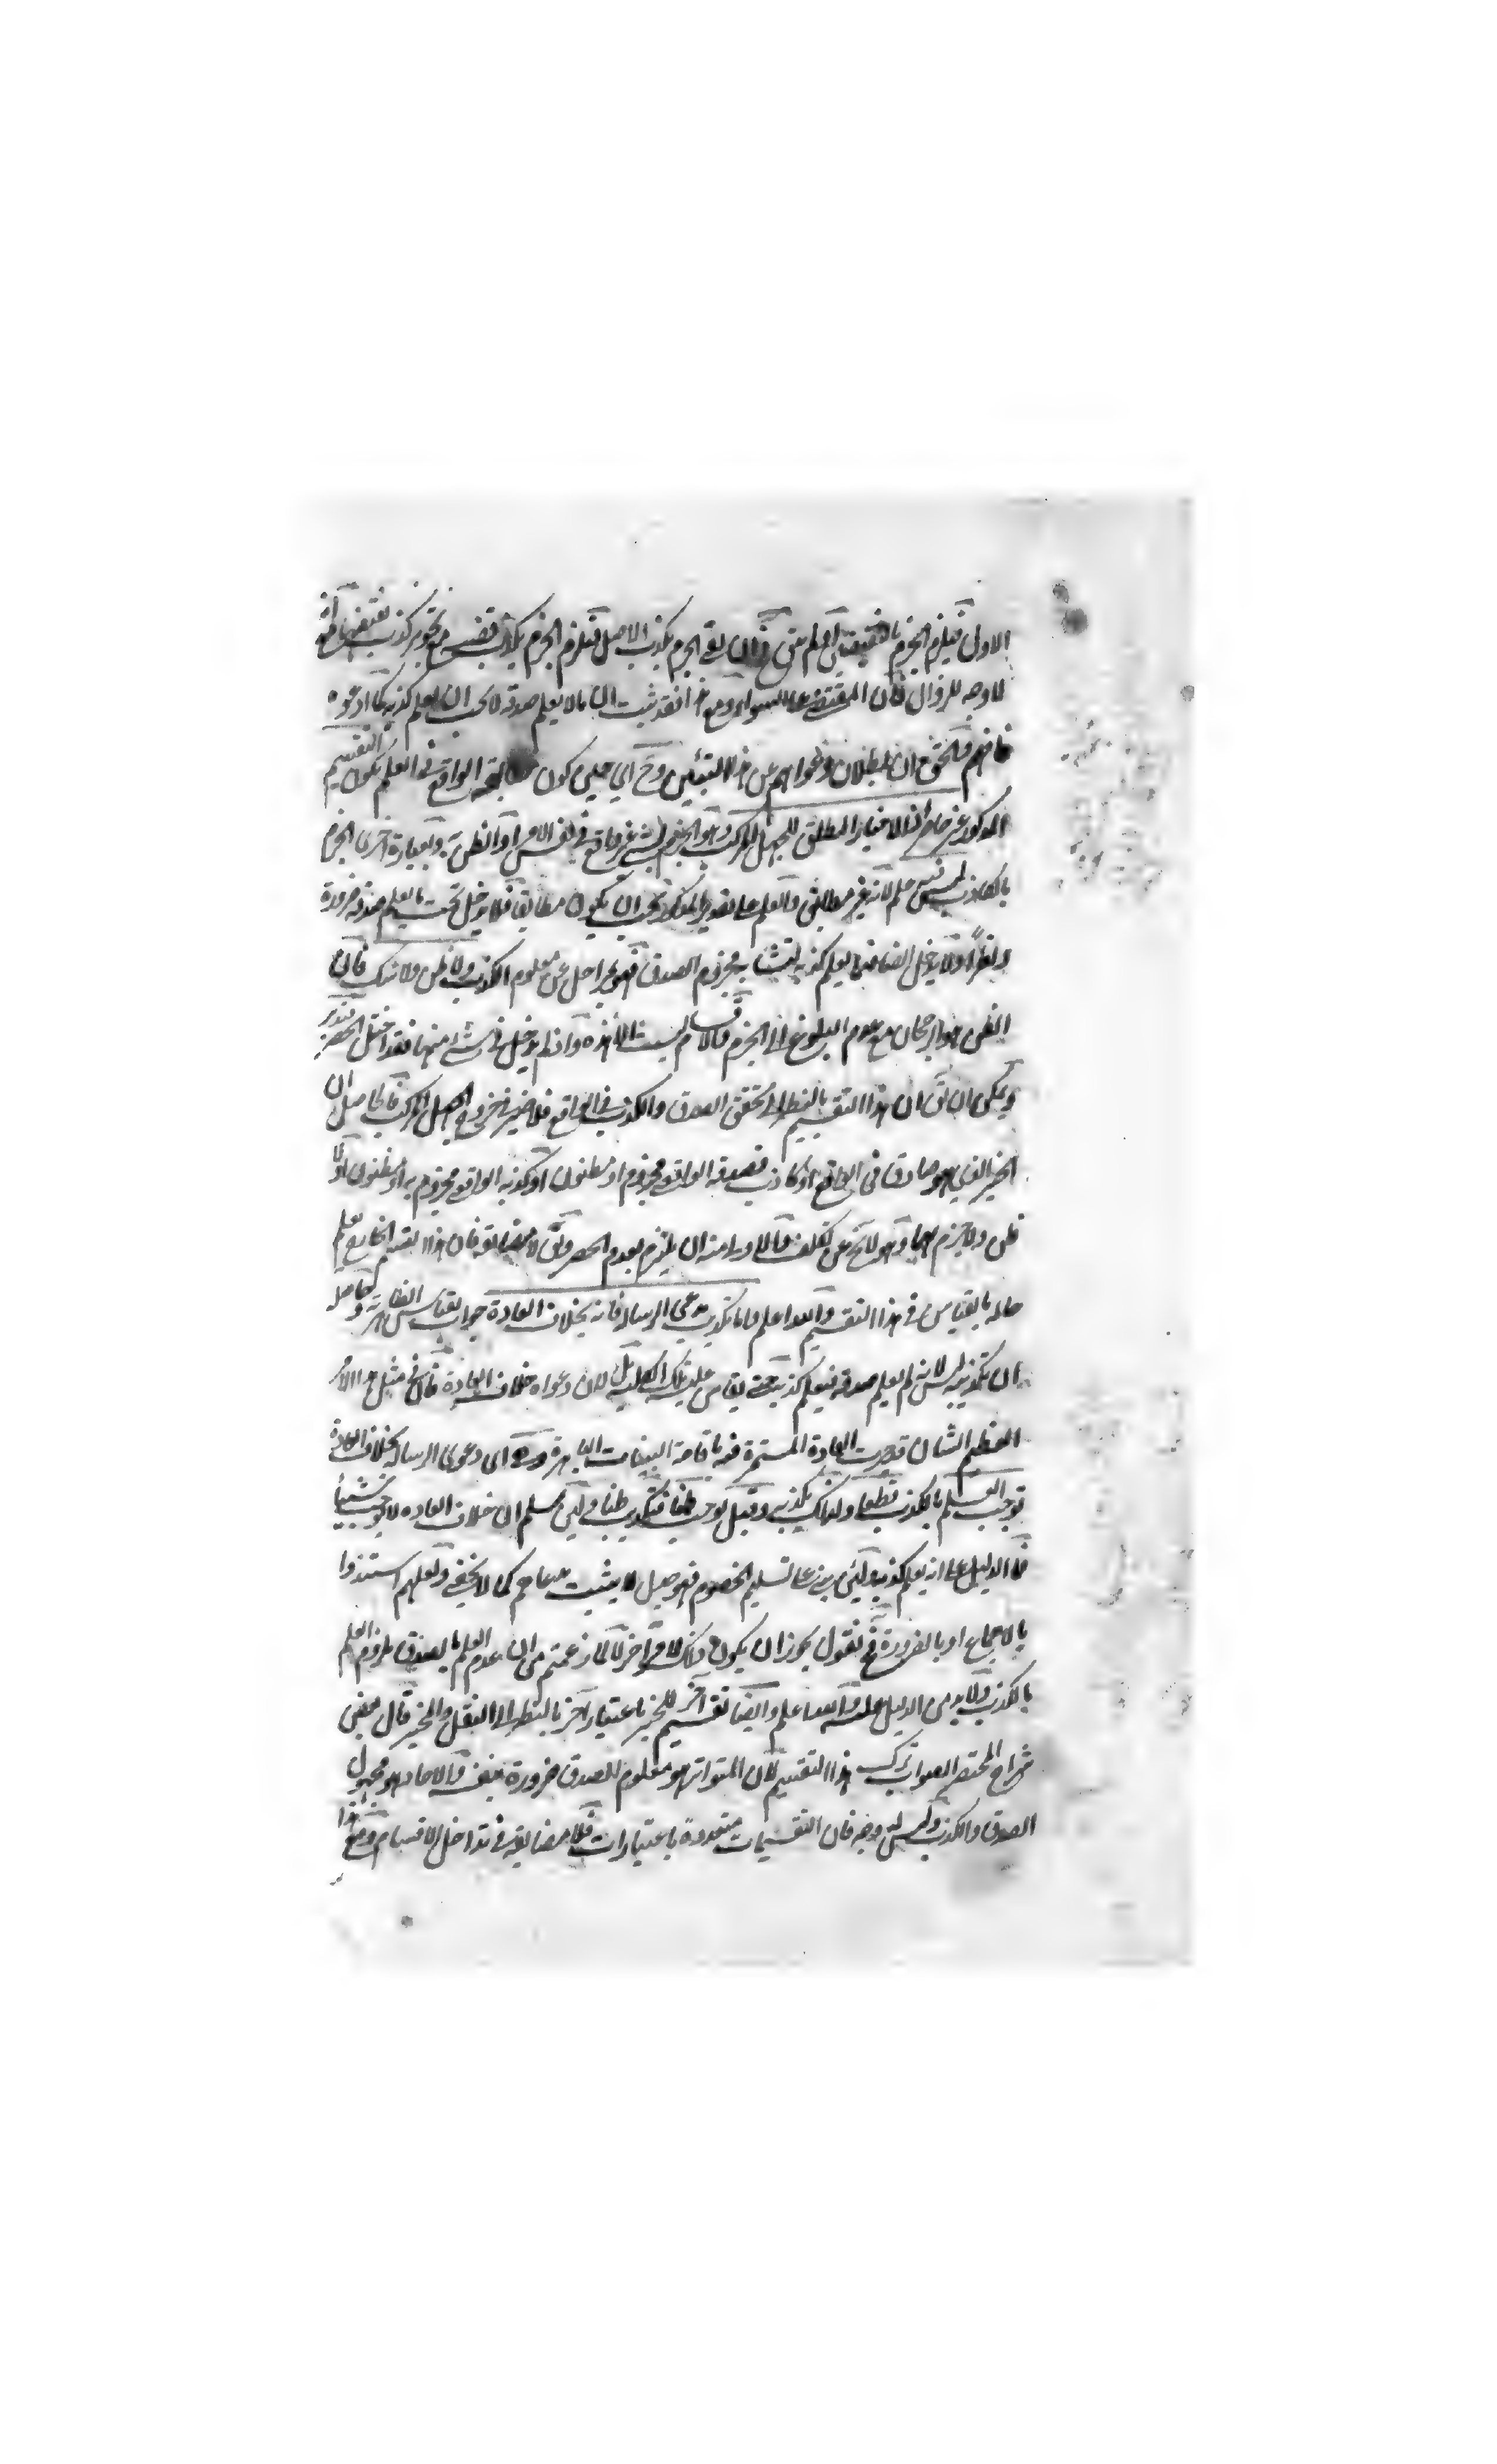 الاول فيلزم الجزم بالنقيضين لم بقي الجزم بكذب الاصل فيلزم الجزم بكذب نقيضه مع تجويز كذب نقيضهما
لا وجه للزوال فان المقتضى على السواء ومع هذا فقد ثبت ان ما لا يعلم صدقه لا يجب ان يعلم كذبه كما ادعوه
فافهم وتحقق ان بطلان دعواهم من هذا وح اي حين كون مطابقة الواقع في العلم يكون التقسيم
المذكور غير حاصر الاخبار المطلق للجهل المركب وهو الجزم بشيء غير واقع في نفس الامر او الظن به وبعبارة اخرى الجزم
بالكاذب ليس بعلم لانه غير مطابق والعلم على تقدير المذكور يجب ان يكون مطابقا فلا يدخل تحت ما يعلم صدقه ضرورة
ونظرا ولا يدخل ايضا فيما يعلم كذبه مجزوم الصدق فهو بمراحل عن معلوم الكذب ولا ظن ولا شك فان
الظن هو الرجحان مع عدم البلوغ الى الجزم والاقسام ليست الا هذه واذا لم يدخل في شيء منها فقد اختل الحصر فتدبر
ويمكن ان يق ان هذا التقسيم بالنظر الى تحقق الصدق والكذب في الواقع فلا ضير في خروج الجهل المركب فالحاصل ان
الخبر الذي هو صادق في الواقع او كاذب فصدقه الواقعي مجزوم او مظنون او كذبه الواقعي مجزوم به او مظنون او لا
ظن ولا جزم بهما وهو لا يخ عن تكلف فالاولى منه ان يلتزم بعدم الحصر ولا مضايقة فان هذا القسم الخارج يعلم
حاله بالقياس في هذا التقسيم والله اعلم واما تكذيب مدعي الرسالة فانه بخلاف العادة جواب لقياس الظاهرية وحاصله
ان تكذيبه ليس لانه لم يعلم صدقه فيعلم كذبه حتى يقاس عليه تلك الكلية بل لان دعواه خلاف العادة فان في مثل هذا الامر
العظيم الشان قد جرت العادة المستمرة فيه باقامة البينات الباهرة وهي اي دعوى الرسالة بخلاف العادة
توجب العلم بالكذب قطعا ولذلك يكذب وقيل توجب ظنا فتكذيب ظنا ولئن سلم ان خلاف العادة لا يوجب شيئا
فما الدليل على انه يعلم كذبه ولئن على تسليم الخصوم فهو جدل لا يثبت مدعاهم كما لا يخفى ولعلهم استندوا
بالاجماع او بالضرورة فح نقول يجوز ان يكون ذلك لامر اخر لا لما زعمتم من ان عدم العلم بالصدق ملزوم العلم
بالكذب ولا بد من الدليل عليه والله اعلم وايضا تقسيم اخر للخبر باعتبار اخر بالنظر الى النقل والخبر قال بعض
شراح المختصر الصواب ترك هذا التقسيم لان المتواتر هو معلوم الصدق ضرورة والاحاد هو مجهول
الصدق والكذب وليس له وجه فان التقسيمات متعددة باعتبارات فلا مضايقة في تداخل الاقسام ومع هذا